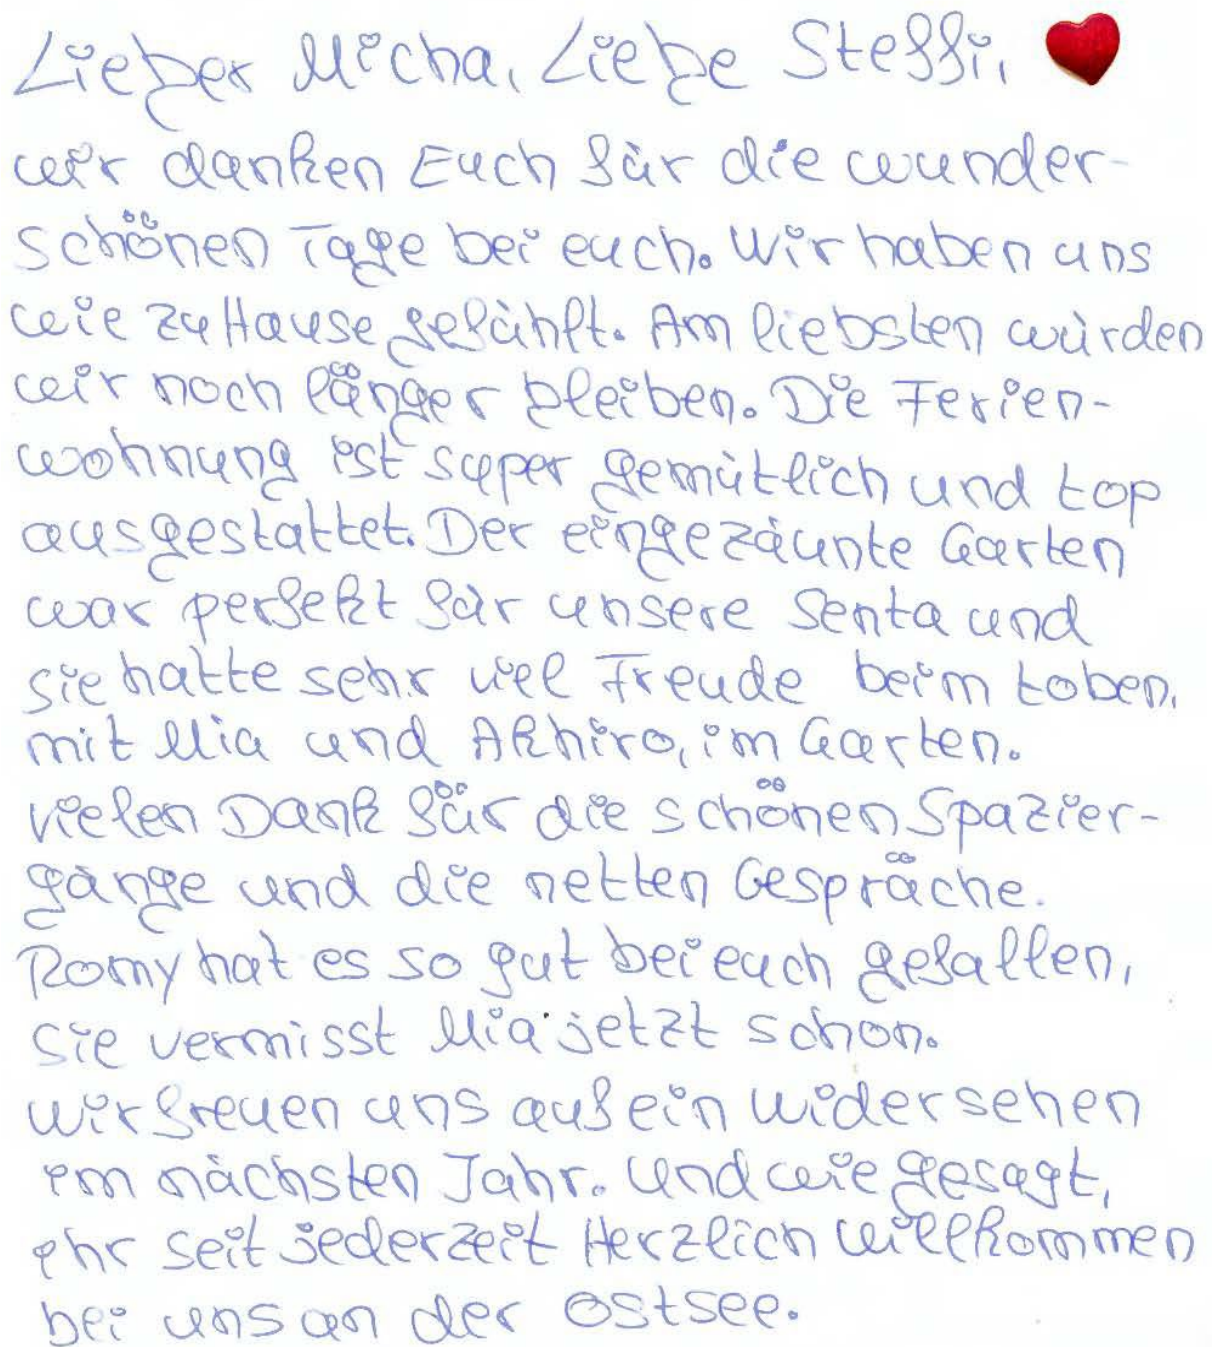 Lieber Micha, Liebe Steffi,
wir danken Euch für die wunder-
schönen Tage bei euch. Wir haben uns
wie zu Hause gefühlt. Am liebsten würden
wir noch länger bleiben. Die Ferien-
wohnung ist super gemütlich und top
ausgestattet. Der eingezäunte Garten
war perfekt für unsere Senta und
sie hatte sehr viel Freude beim toben,
mit Mia und Akhiro, im Garten.
vielen Dank für die schönen Spazier-
gänge und die netten Gespräche.
Romy hat es so gut bei euch gefallen,
sie vermisst Mia jetzt schon.
wir freuen uns auf ein widersehen
im nächsten Jahr. Und wie gesagt,
ihr seit jederzeit Herzlich willkommen
bei uns an der Ostsee.